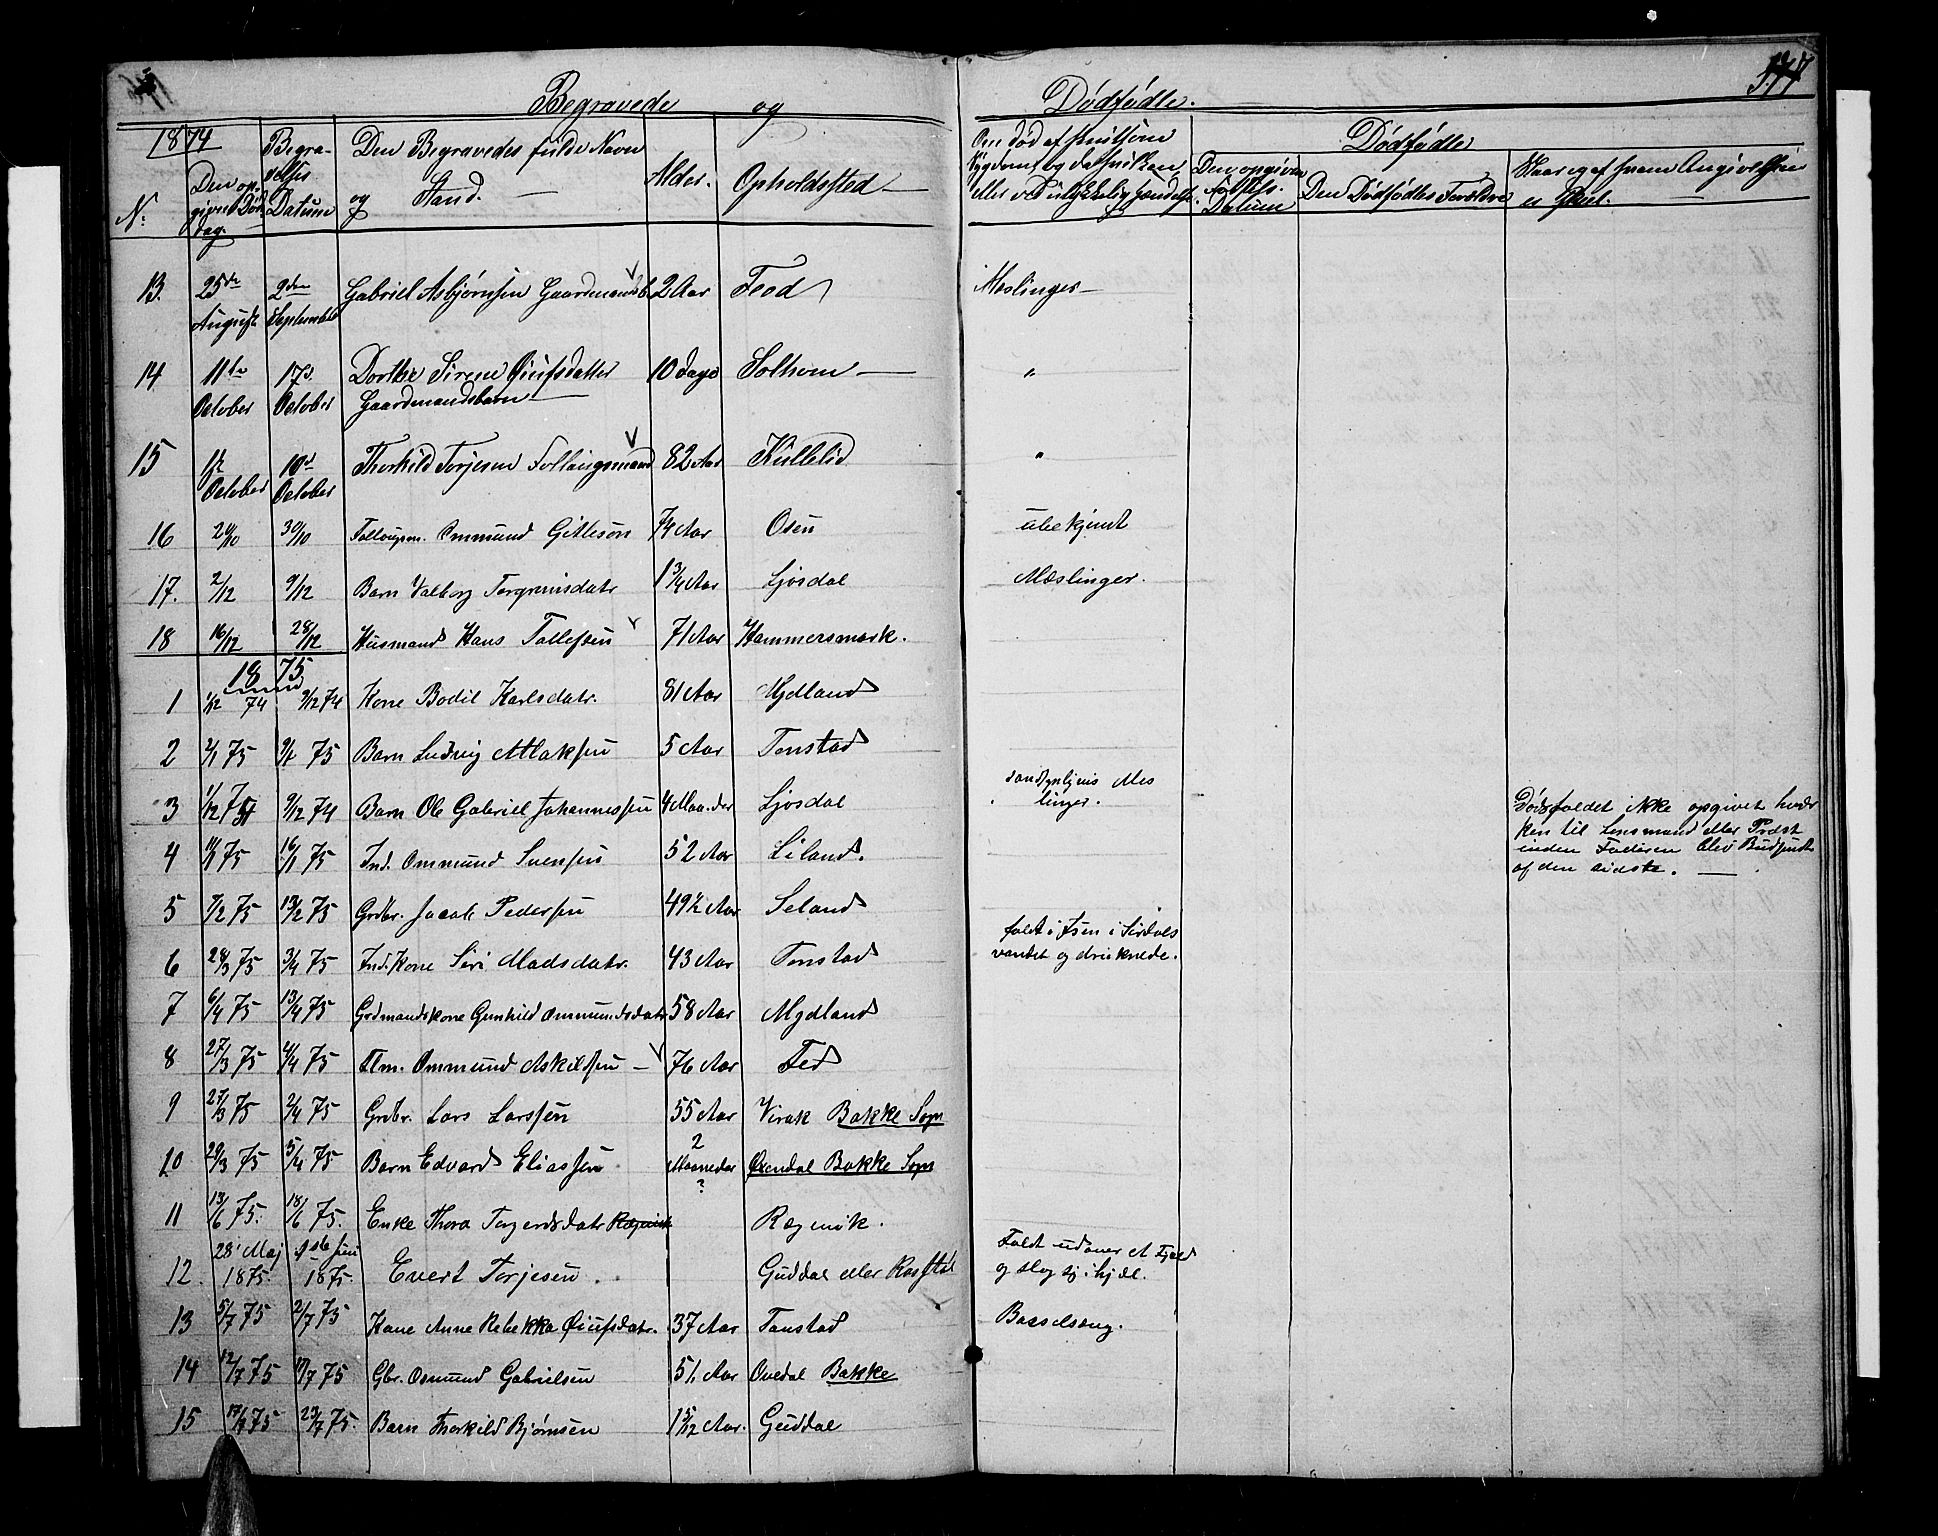 Begravede og Dødfødte.
177
1874
N:
Den opgivne Dødsdag.
Begravelses Datum
Den Begravedes fulde Navn og Stand.
Alder.
Opholdssted
Dødfødte
Den opgivne Fødsels Datum
Den Dødfødtes Forældre
13. 25de August 2den September Gabriel Asbjørnsen Gaardmandsb. 2 Aar Feod Meslinger
14 11te October 17d. October Dorthe Sirene Øiufsdatter Gaardmandsbarn 10 Dage Solhom "
15 1ste October 10d October Thorkild Torjesen Follaugsmand 82 Aar Kvllelid "
16 30/10 Follaugsm. Ommund Gitleson 74 Aar Osen ubekjendt
17. 2/12 9/12 Barn Valborg Torgrimsdatr 1 3/4 Aar Ljosdal Mæslinger.
18 16/12 28/12 Husmand Hans Tollefsen 71 Aar Hammersmark.
1875
1 1/12 74 9/12 74 Kone Bodil Karlsdatr. 81 Aar Mydland
2 2/1 75 9/1 75 Barn Ludvig Atlaksen 5 Aar Tonstad
3 1/12 74 9/12 74 Barn Ole Gabriel Johannessen 4 Maaneder Ljosdal sandsynligvis Meslinger. Dødsfaldet ikke opgivet hverken til Lensmand eller Præst inden Faderen blev Budsendt af den sidste.
4 11/1 75 16/1 75 Ind. Ommund Svensen 52 Aar Liland.
5 7/2 75 13/2 75 Grdbr. Jacob Pedersen 49 1/2 Aar Seland
6 28/3 75 3/4 75 Ind. Kone Siri Madsdatr. 43 Aar Tonstad faldt i Isen i Sirdalsvandet og druknede.
7 6/4 75 13/4 75 Grdmandskone Gunhild Ommundsdatr 58 Aar Mydland
8 27/3 75 4/4 75 Flm. Ommund Askildsen 76 Aar Fed
9 27/3 75 2/4 75 Grdbr. Lars Larssen 55 Aar Virak Bakke Sogn
10 29/3 75 5/4 75 Barn Edvard Eliassen 2 Maaneder ? Øxendal Bakke Sogn
11 13/6 75. 18/6 75. Enke Thora Torgerdsdatr Rægevik.
12. 28' Maj 1875. 1ste Juni 1875. Evert Torjesen. Guddal eller Rosstøl Faldt udover et Fjeld og slog sig ihjæl.
13 5/7 75 2/7 75 Kone Anne Rebekka Øiufsdatr. 37 Aar Tonstad Barselseng.
14 12/7 75 17/7 75 Gbr. Osmund Gabrielsen 51 Aar Ovedal Bakke
15 17/7 75 23/7 75. Barn Thorkild Bjørnsen 1 5/12 Aar. Guddal